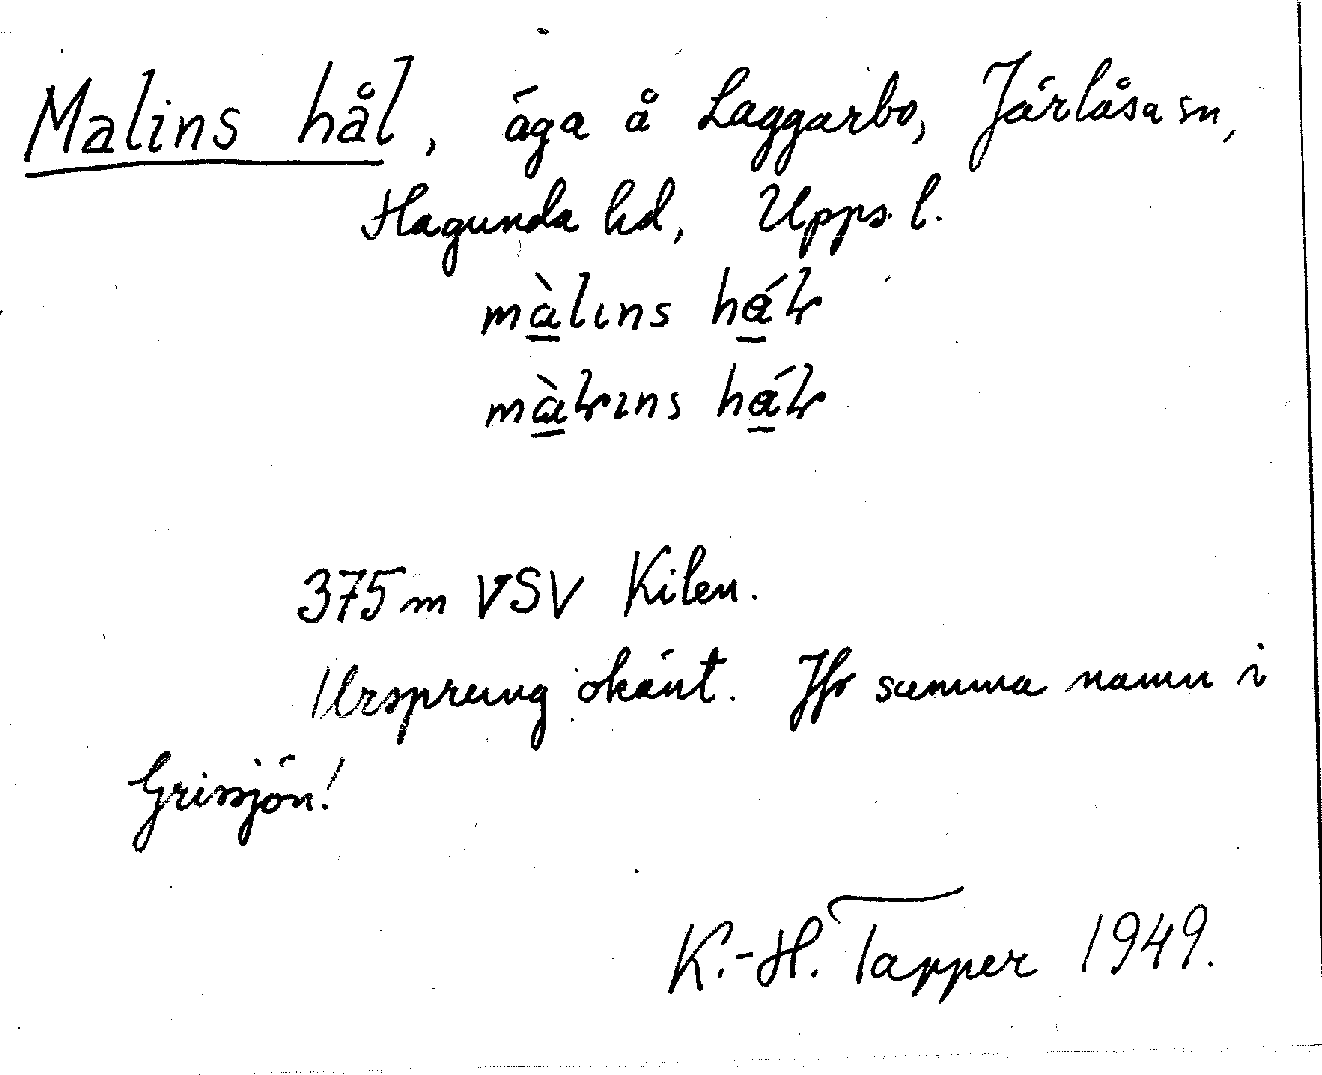 Malins hål, äga å Laggarbo, Järlåsa sn,
Hagunda hd, Upps. l.
màlıns háɫ
màɫıns háɫ
375 m VSV Kilen.
Ursprung okänt. Jfr samma namn i
Grissjön!
K.-H. Tapper 1949.